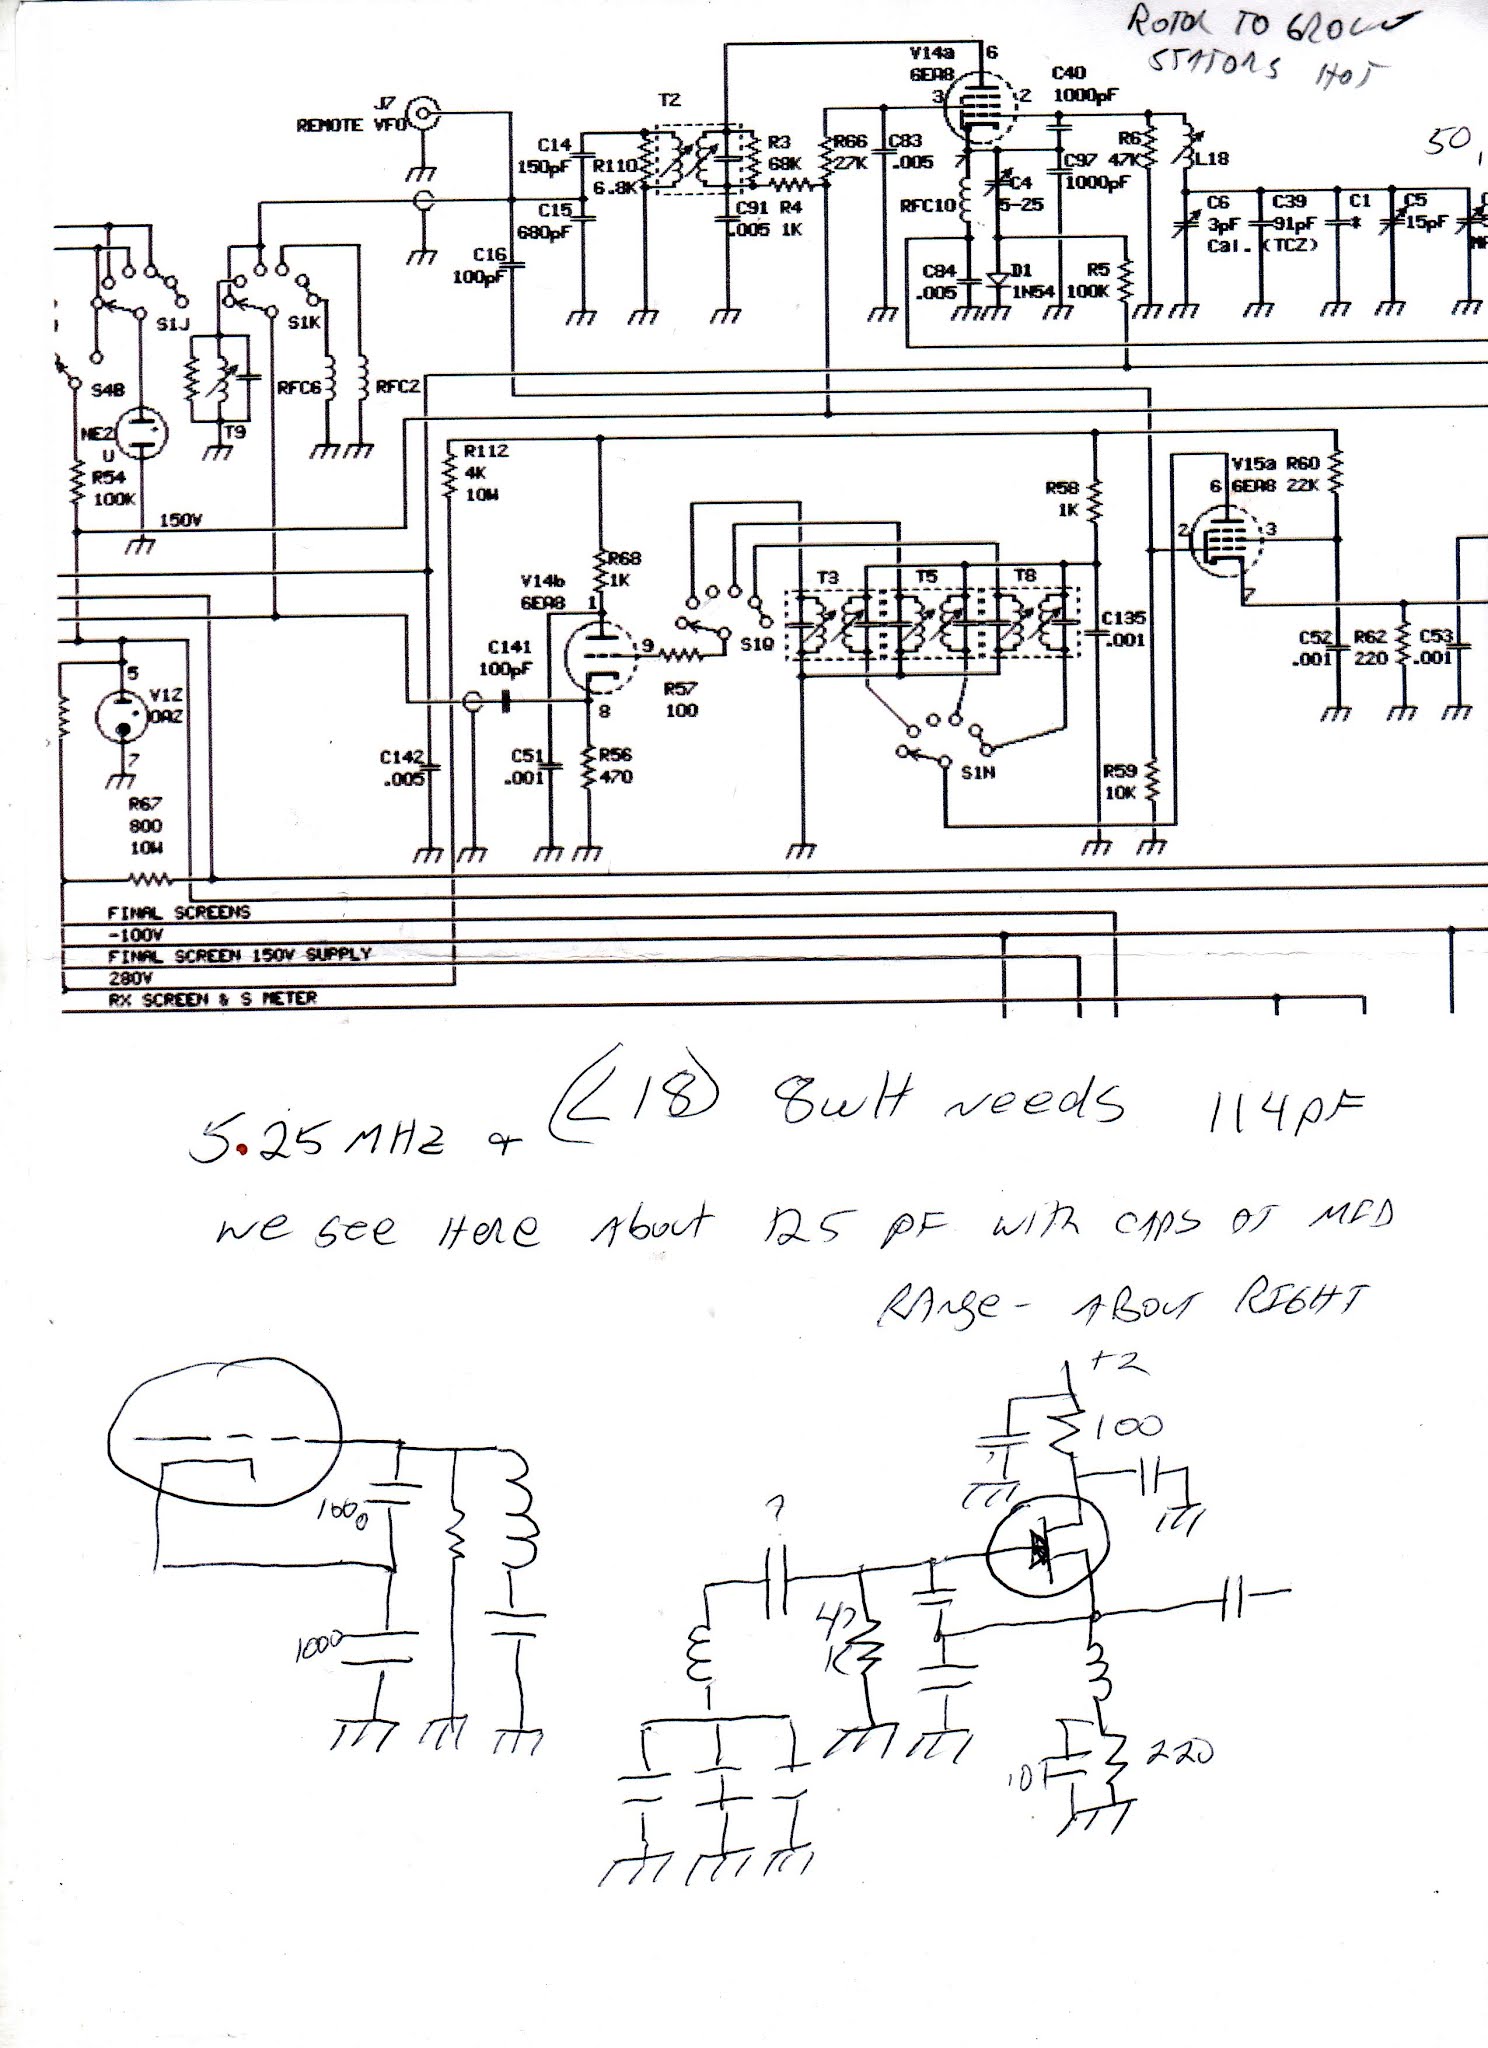 ROTOR TO GROUND
STATORS HOT
50,
V14a 6
6EA8
3
2
C40
1000pF
J7
REMOTE VFO
T2
C14
150pF
R110
6.8K
R3
68K
R66
27K
C83
.005
R6
47K
L18
C97
1000pF
C15
680pF
C91 R4
.005 1K
RFC10
C4
5-25
C6
3pF
Cal.
C39
91pF
(TCZ)
C1
*
C5
15pF
C16
100pF
C84
.005
D1
1N54
R5
100K
S1J
S1K
S4B
RFC6
RFC2
NE2
U
T9
R54
100K
150V
R112
4K
10W
R58
1K
V15a R60
6 6EA8 22K
2
3
7
R68
1K
V14b
6EA8 1
T3
T5
T8
C141
100pF
9
S1Q
C135
.001
R57
100
8
C52
.001
R62
220
C53
.001
5
V12
OA2
7
C142
.005
C51
.001
R56
470
S1N
R59
10K
R67
800
10W
FINAL SCREENS
-100V
FINAL SCREEN 150V SUPPLY
280V
RX SCREEN & S METER
5.25 MHz + (L18) 8uH needs 114pF
we see Here About 125 pF with caps at MID
RANge - ABout RIGHT
+2
100
1000
?
47
K
1000
220
.01